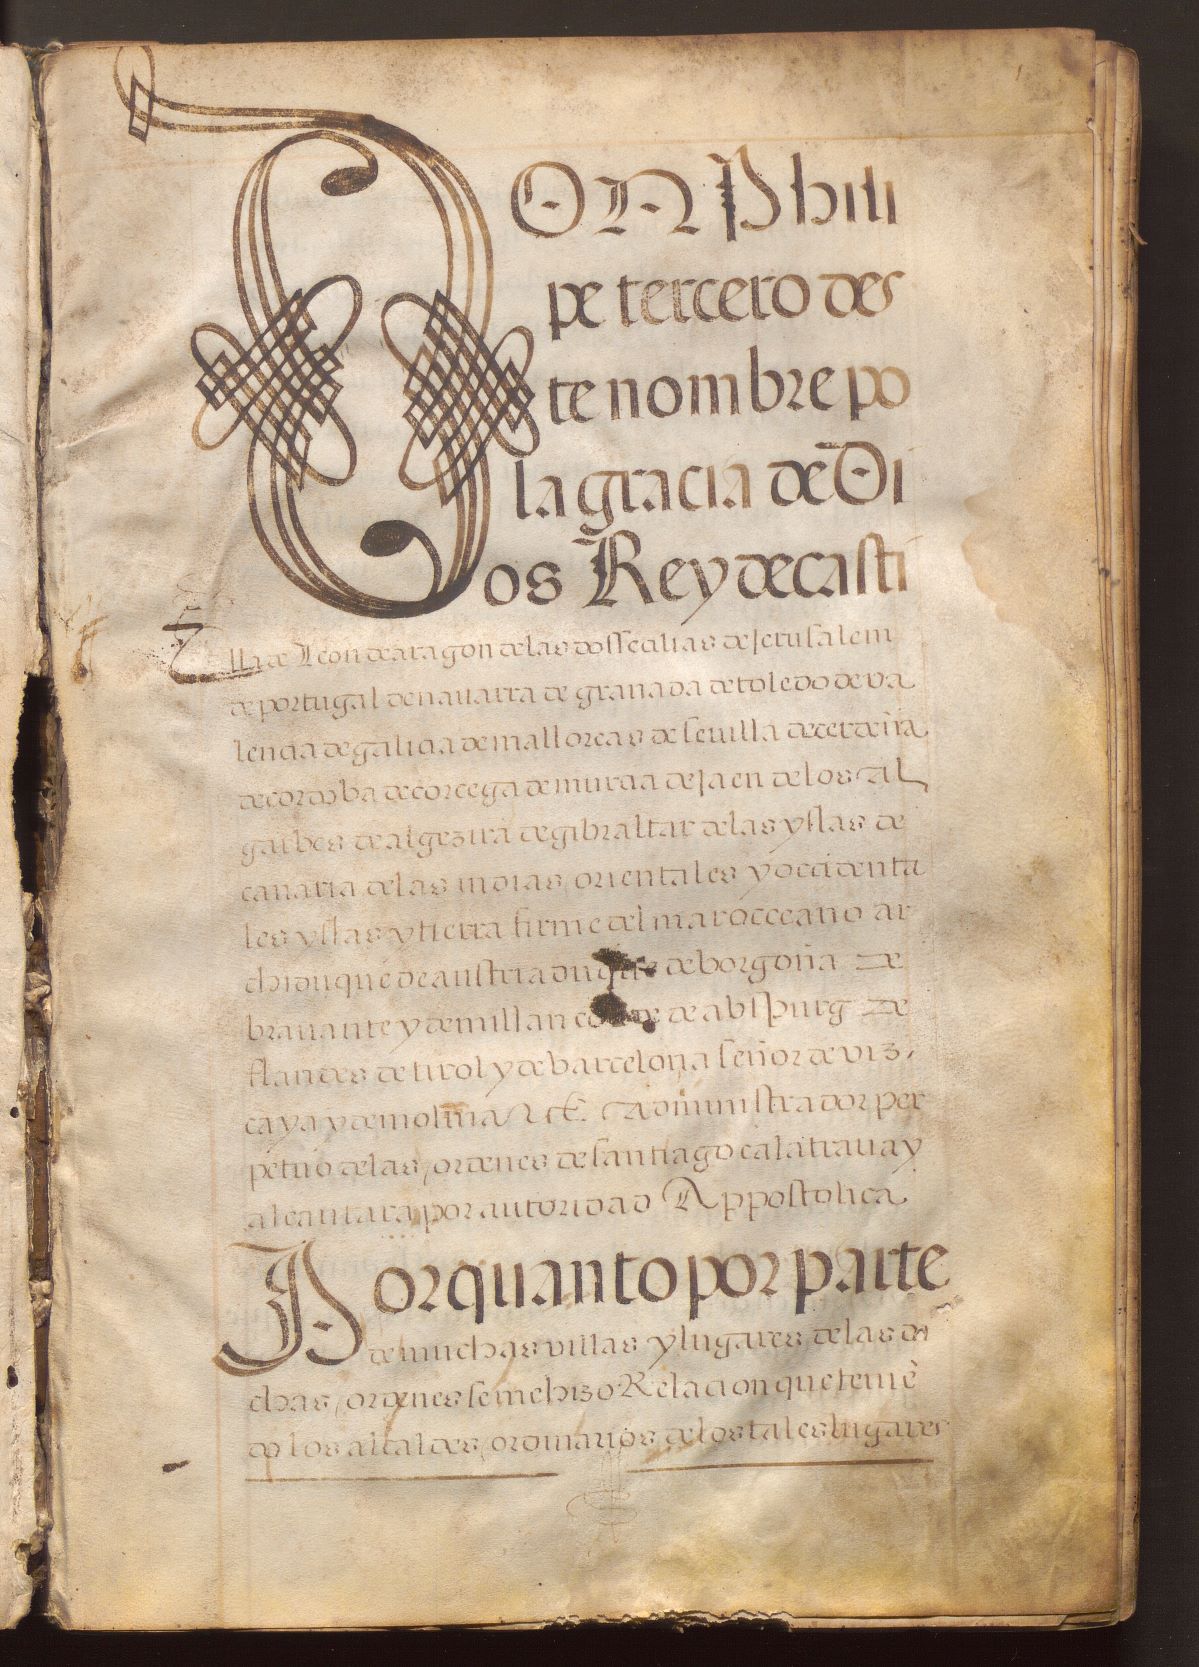 DON Phili
pe tercero des
te nombre po
la gracia de Di
os Rey de casti
lla de Leon de aragon de las dos secilias de Jerusalem
de portugal de nauarra de granada de toledo de va
lencia de galicia de mallorcas de seuilla de cerdeña
de cordoba de corcega de murcia de Jaen de los al
garbes de algezira de gibraltar de las yslas de
canaria de las indias orientales y occidenta
les yslas y tierra firme del mar occeano ar
chiduque de austria duque de borgoña de
brauante y de millan conde de abspurg de
flandes de tirol y de barcelona señor de viz,
caya y de molina &c. Administrador per
petuo de las ordenes de santiago calatraua y
alcantara por autoridad Appostolica
Por quanto por parte
de muchas villas y lugares de las di
chas ordenes se me hizo Relacion que teniē
do los alcaldes ordinarios de los tales lugares